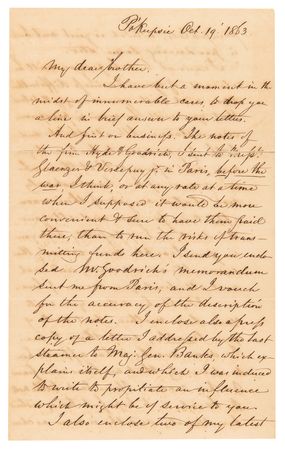 Po'Keepsie Oct. 19' 1863
My dear brother,
I have but a moment in the
midst of innumerable cares, to drop you
a line in brief answer to your letters.
And first on business. The notes of
the firm Hyde & Goodrich, I sent to Messrs
& in Paris, before the
war, I think, or at any rate at a time
when I supposed it would be more
convenient & sure to have them paid
there, than to run the risks of trans-
mitting funds here. I send you enclo-
sed Mr. Goodrich's memorandum
sent me from Paris, and I vouch
for the accuracy of the description
of the notes. I inclose also a press
copy of a letter I addressed by the last
steamer to Maj. Gen. Banks, which ex-
plains itself, and which I was induced
to write to propitiate an influence
which might be of service to you.
I also enclose two of my latest